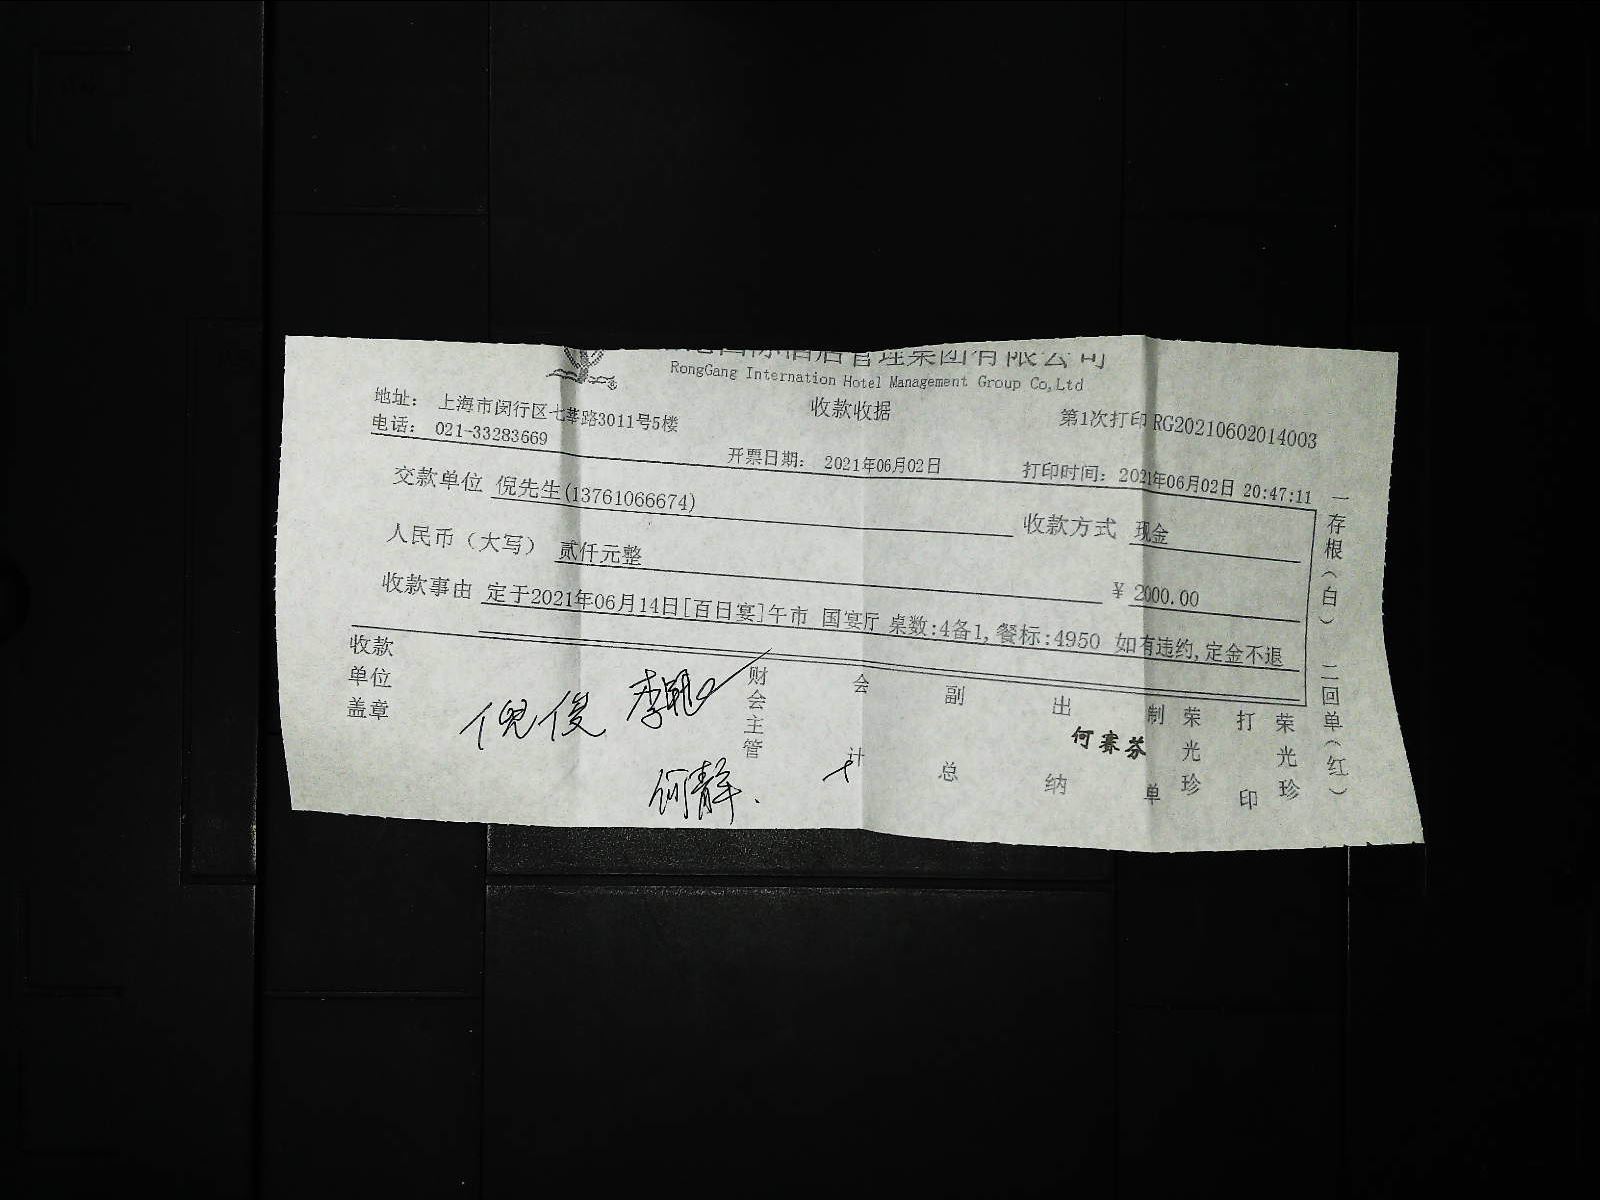 国际酒店管理集团有限公司
RongGang Internation Hotel Management Group Co,Ltd
收款收据
地址： 上海市闵行区七莘路3011号5楼
第1次打印 RG20210602014003
电话： 021-33283669
开票日期： 2021年06月02日
打印时间： 2021年06月02日 20:47:11
交款单位 倪先生(13761066674)
收款方式 现金
人民币（大写） 贰仟元整
¥ 2000.00
收款事由 定于2021年06月14日[百日宴]午市 国宴厅 桌数:4备1,餐标:4950 如有违约,定金不退
收款单位盖章
倪俊
何静
财会主管
会计
副总
出纳
何赛芬
制单
荣光珍
打印
荣光珍
一存根（白） 二回单（红）